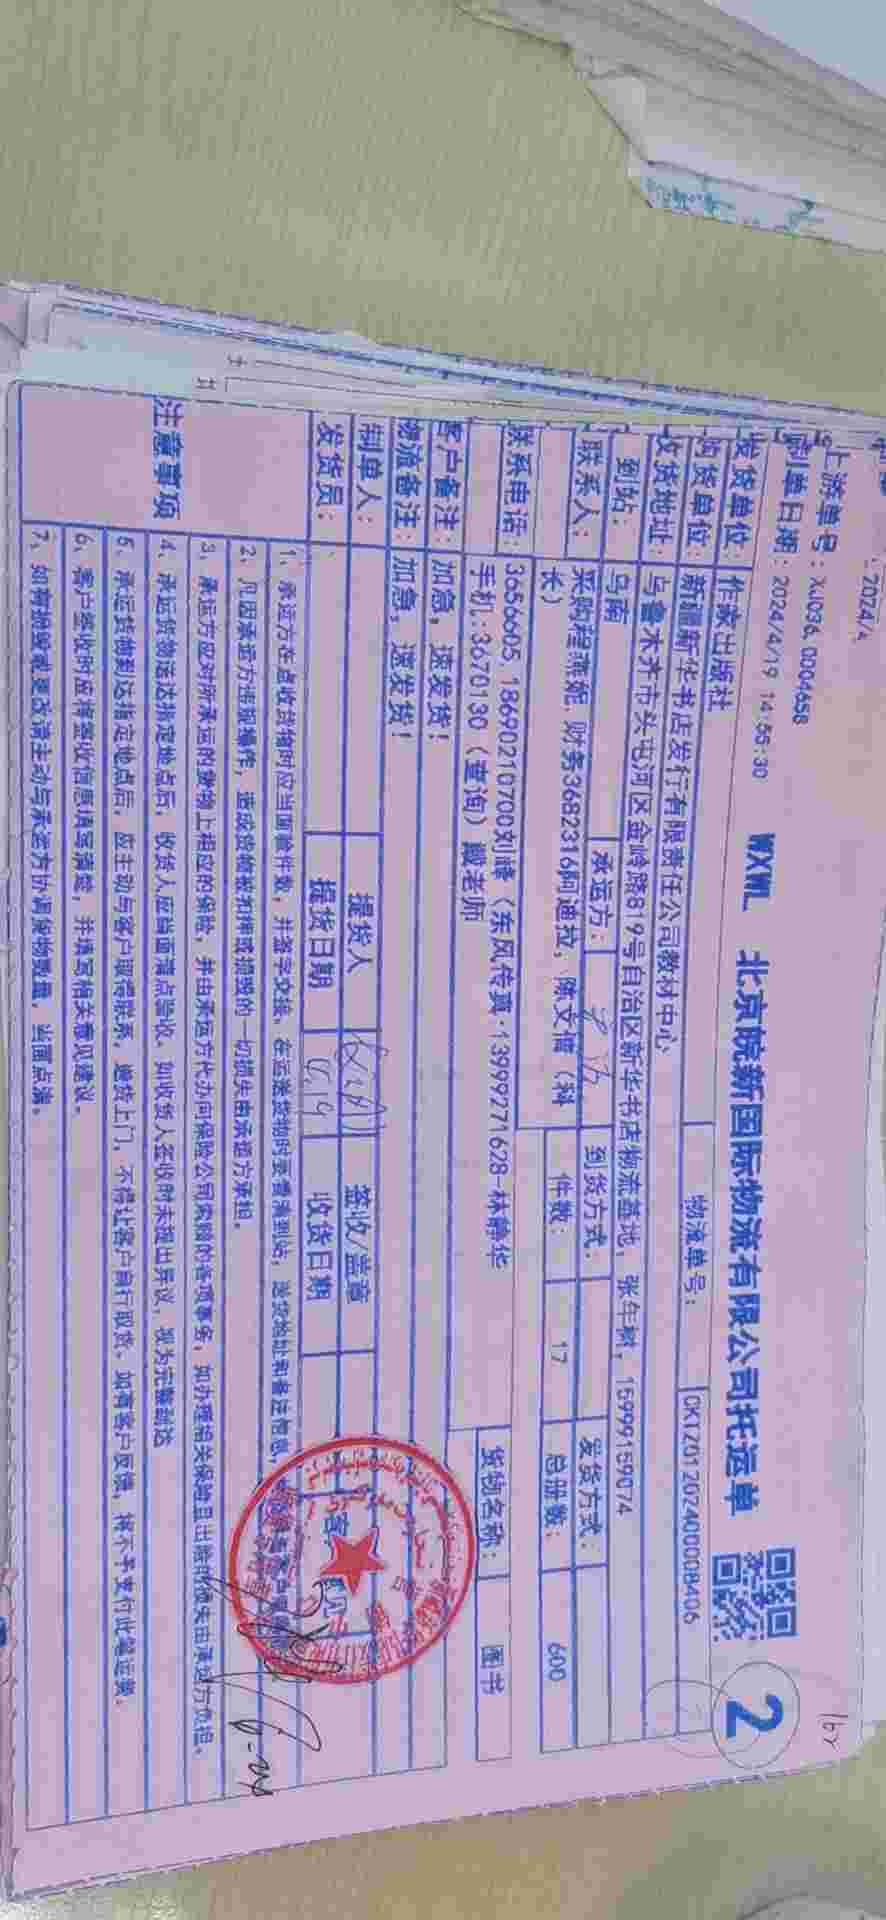 2024/4
上游单号：XJ036, 0004658
制单日期：2024/4/19 14:55:30
WXWL 北京皖新国际物流有限公司托运单
2
物流单号： CKTZ01202400008406
发货单位： 作家出版社
收货单位： 新疆新华书店发行有限责任公司教材中心
收货地址： 乌鲁木齐市头屯河区金岭路819号自治区新华书店物流基地，张年树，15999159074
到站： 乌南 承运方： 到货方式： 发货方式：
联系人： 采购程燕妮，财务3682316阿迪拉，陈文 （科长） 件数： 17 总册数： 600
联系电话： 3656605, 18690210700刘峰（东风传真-13999271628-林静华 货物名称： 图书
手机:3670130（查询）戴老师
客户备注： 加急，速发货！
物流备注： 加急，速发货！
制单人： 提货人 签收/盖章
发货员： 提货日期 4.19 收货日期
注意事项
1、承运方在点收货物时应当面验件数，并签字交接，在运送货物时要看清到站，送货地址和备注信息，
2、凡因承运方违规操作，造成货物被扣押或损毁的一切损失由承运方承担。
3、承运方应对所承运的货物上相应的保险，并由承运方代办向保险公司索赔的各项事务，如办理相关保险且出险的损失由承运方负担。
4、承运货物运达指定地点后，收货人应当面清点验收，如收货人签收时未提出异议，视为完整到达
5、承运货物到达指定地点后，应主动与客户取得联系，送货上门，不得让客户自行取货，如有客户反馈，按不予支付此笔运费。
6、客户签收时应将签收信息填写清楚，并填写相关意见建议。
7、如有损毁或更改请主动与承运方协调货物数量，当面点清。